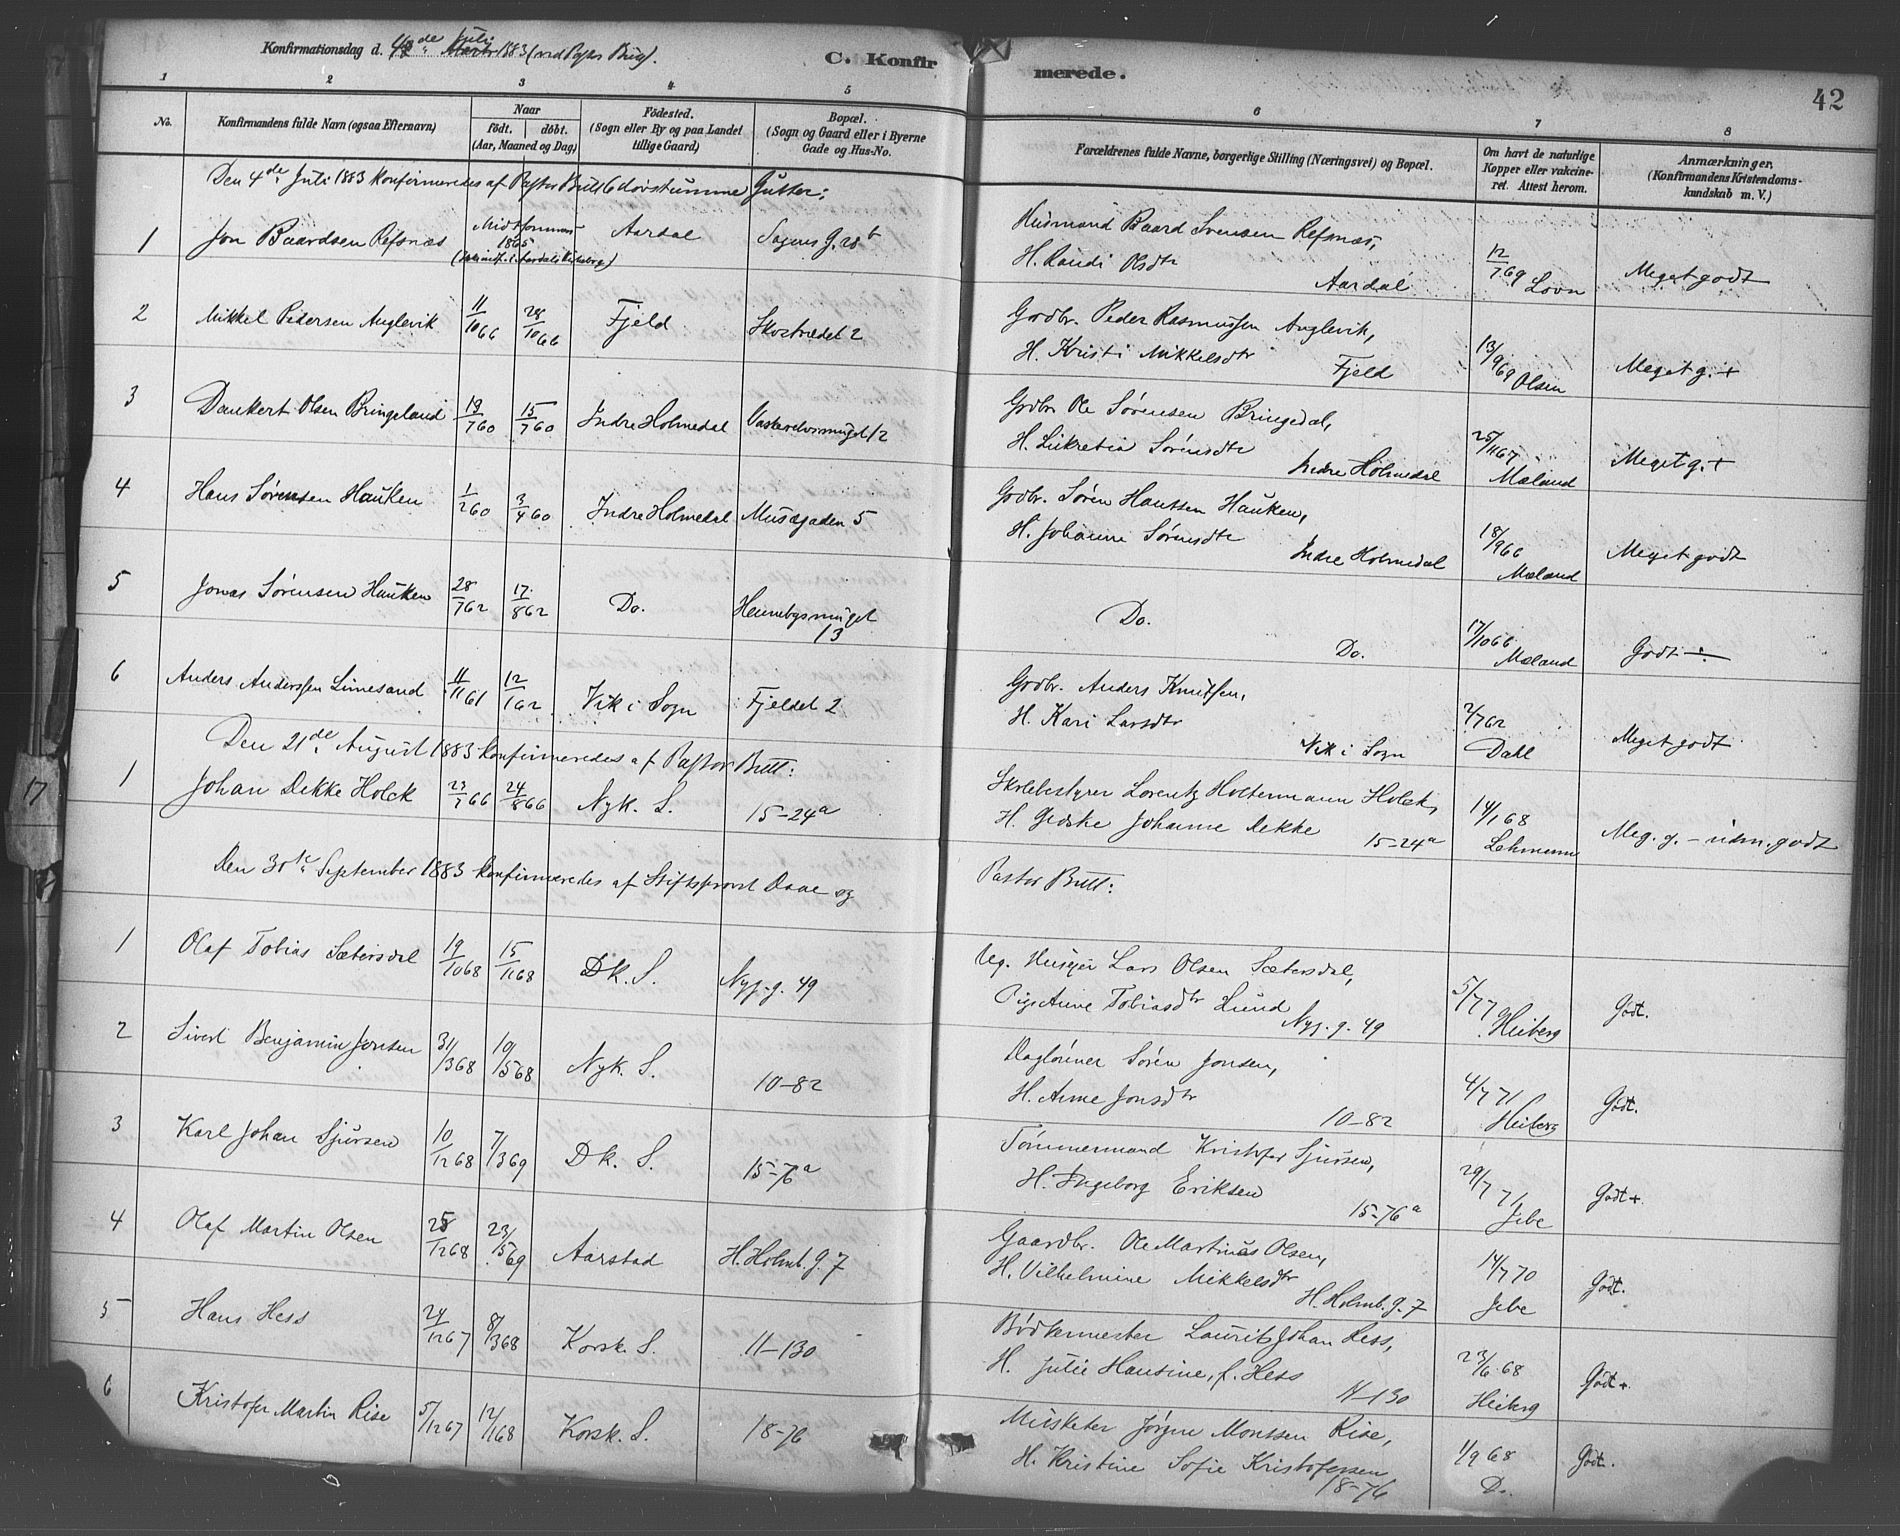 Konfirmationsdag d. 4de Juli 1883 (ved Pastor Bull).
C. Konfirmerede.
42
1 2 3 4 5 6 7 8
No.
Konfirmandens fulde Navn (ogsaa Efternavn)
Naar
födt. döbt.
(Aar, Maaned og Dag)
Födested.
(Sogn eller By og paa Landet
tillige Gaard)
Bopæl.
(Sogn og Gaard eller i Byerne
Gade og Hus-No.
Forældrenes fulde Navne, borgerlige Stilling (Næringsvei) og Bopæl.
Om havt de naturlige
Kopper eller vakcine-
ret. Attest herom.
Anmærkninger.
(Konfirmandens Kristendoms-
kundskab m. V.)
Den 4de Juli 1883 konfirmeredes af Pastor Bull 6 døvstumme Gutter:
1 Jon Baardsen Refsnæs Midtsommer 1865 Aardal Sagens G. 28b
Husmand Baard Svensen Refsnæs,
H. Randi Olsdtr Aardal 12/7 69 Lovn Meget godt
2 Mikkel Pedersen Anglevik 11/10 66 28/10 66 Fjeld Skostrædet 2
Grdbr. Peder Rasmussen Anglevik,
H. Kristi Mikkelsdtr Fjeld 13/9 69 Olsen Meget g. +
3 Dankert Olsen Bringeland 19/7 60 15/7 60 Indre Holmedal Vaskerelvsmuget 12
Grdbr Ole Sørensen Bringedal,
H. Lukretia Sørensdtr Indre Holmedal 25/11 67 Mæland Meget g. +
4 Hans Sørensen Hauken 1/2 60 3/4 60 Indre Holmedal Musægaden 5
Grdbr. Søren Hanssen Hauken,
H. Johanne Sørensdtr Indre Holmedal 18/9 66 Mæland Meget godt
5 Jonas Sørensen Hauken 28/7 62 17/8 62 Do. Hennebysmuget 13
Do. Do. 17/10 66 Mæland Godt ÷
6 Anders Anderssen Limesand 11/11 61 12/1 62 Vik i Sogn Fjeldet 2
Grdbr. Anders Knutsen,
H. Kari Larsdtr Vik i Sogn 2/7 62 Dahl Meget godt
Den 21de August 1883 konfirmeredes af Pastor Bull:
1 Johan Dekke Holck 23/7 66 24/8 66 Nyk. S. 15-24a
Skolebestyrer Lorentz Holtermann Holck,
H. Gjeske Johanne Dekke 15-24a 14/1 68 Lehmann Meg. g. - udm. godt
Den 30te September 1883 konfirmeredes af Stiftsprovst Daae og Pastor Bull:
1 Olaf Tobias Sætersdal 19/10 68 15/11 68 Dk. S. Nyg. g. 49
Ug. Husejer Lars Olsen Sætersdal,
Pige Anne Tobiasdtr Lund Nyg. g. 49 5/7 79 Heiberg Godt.
2 Sivert Benjamin Jonsen 31/3 68 10/5 68 Nyk. S. 10-82
Daglønner Søren Jonsen,
H. Anne Jonsdtr 10-82 4/7 71 Heiberg Godt.
3 Karl Johan Sjursen 10/12 68 7/3 69 Dk. S. 15-76a
Tømmermand Kristofer Sjursen,
H. Ingeborg Eriksen 15-76a 29/7 71 Jebe Godt +
4 Olaf Martin Olsen 25/12 68 23/5 69 Aarstad H. Holmb. g. 7
Gaardbr. Ole Martinus Olsen,
H. Vilhelmine Mikkelsdtr H. Holmb. g. 7 14/7 70 Jebe Godt.
5 Hans Hess 24/12 67 8/3 68 Korsk. S. 11-130
Bødkermester Laurits Johan Hess,
H. Julie Hansine, f. Hess 11-130 23/6 68 Heiberg Godt +
6 Kristofer Martin Rise 5/12 67 12/1 68 Korsk. S. 18-76
Musketer Jørgen Monssen Rise,
H. Kristine Sofie Kristofersen 18-76 1/9 68 Do. Godt.
17